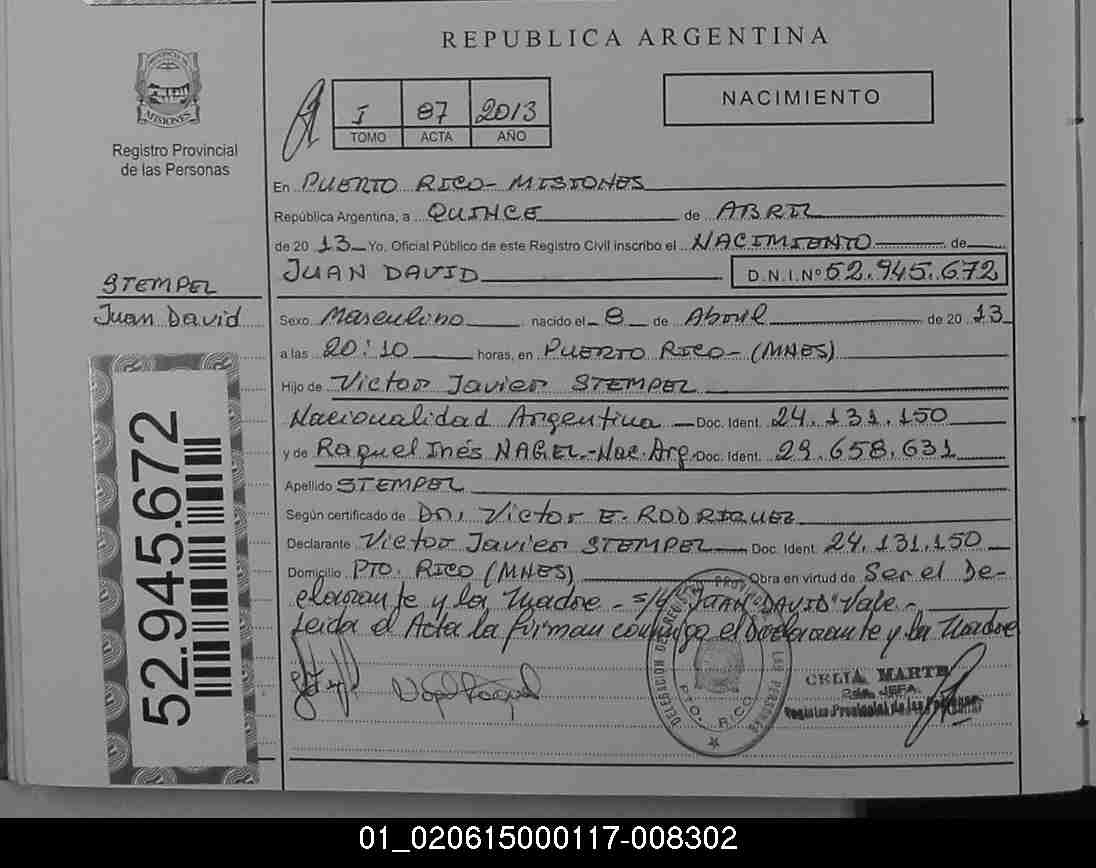 REPUBLICA ARGENTINA
PROVINCIA DE
MISIONES
Registro Provincial
de las Personas
I 87 2013
TOMO ACTA AÑO
NACIMIENTO
En PUERTO RICO - MISIONES
República Argentina, a QUINCE de ABRIL
de 20 13 Yo, Oficial Público de este Registro Civil inscribo el NACIMIENTO de
JUAN DAVID D.N.I.Nº 52.945.672
STEMPEL
Juan David
Sexo Masculino nacido el 8 de Abril de 20 13
a las 20:10 horas, en PUERTO RICO - (MNES)
Hijo de Victor Javier STEMPEL
Nacionalidad Argentina Doc. Ident. 24.131.150
y de Raquel Inés NAGEL - Nac. Arg. Doc. Ident. 29.658.631
Apellido STEMPEL
Según certificado de Dr. Victor E. RODRIGUEZ
Declarante Victor Javier STEMPEL Doc. Ident. 24.131.150
Domicilio PTO. RICO (MNES) Obra en virtud de Ser el De-
clarante y la Madre - S/r "JUAN DAVID" Vale -
Leida el Acta la firman conmigo el Declarante y la Madre
52.945.672
DELEGACION DEL REGISTRO PROVINCIAL DE LAS PERSONAS
PTO. RICO
CELIA MARTE
JEFA
Registro Provincial de las Personas
01_020615000117-008302